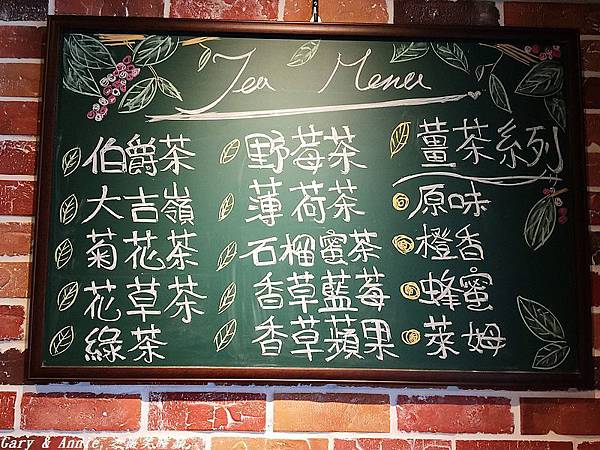 Tea Menu
伯爵茶
大吉嶺
菊花茶
花草茶
綠茶
野莓茶
薄荷茶
石榴蜜茶
香草藍莓
香草蘋果
薑茶系列
原味
橙香
蜂蜜
萊姆
Gary & Annie